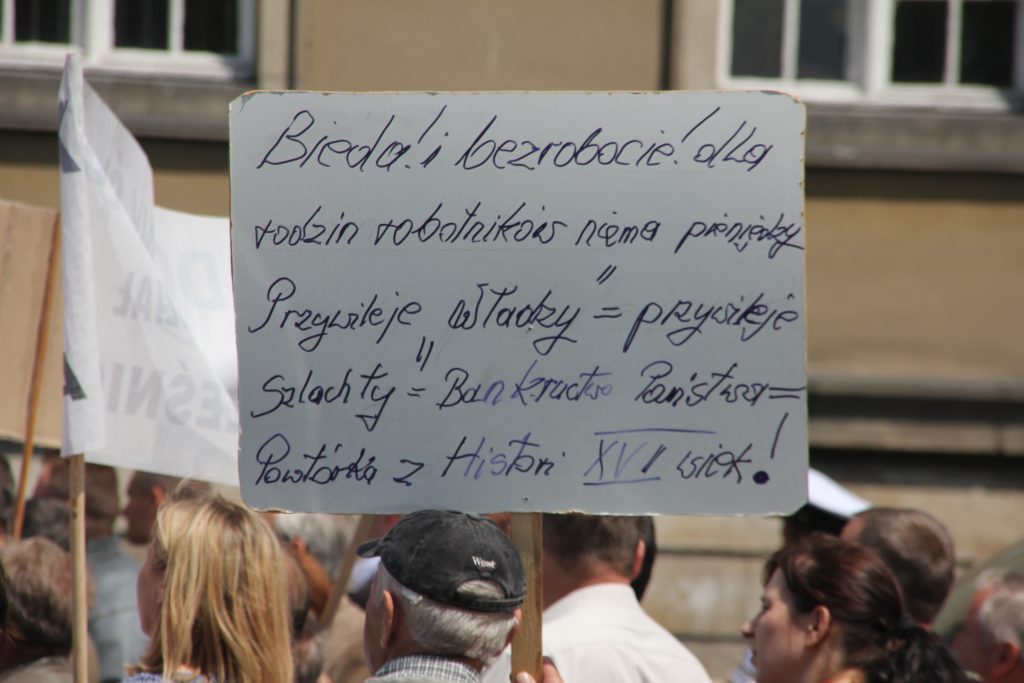 Bieda! i bezrobocie! dla
rodzin robotników niema pieniędzy
Przywileje Władzy" = przywileje
szlachty" = Bankructwo Państwa =
Powtórka z Histori XVII wiek!
West